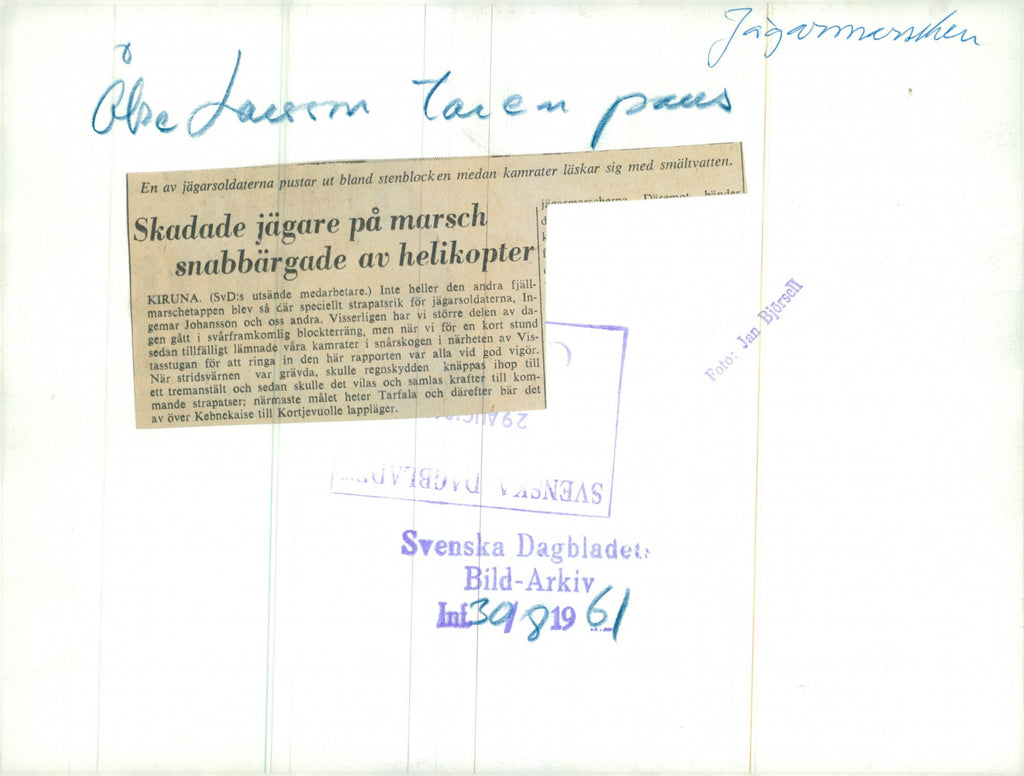 Jägarmarschen
Åke Larsson tar en paus
En av jägarsoldaterna pustar ut bland stenblocken medan kamrater läskar sig med smältvatten.
Skadade jägare på marsch
snabbärgade av helikopter
KIRUNA. (SvD:s utsände medarbetare.) Inte heller den andra fjäll-
marschetappen blev så där speciellt strapatsrik för jägarsoldaterna, In-
gemar Johansson och oss andra. Visserligen har vi större delen av da-
gen gått i svårframkomlig blockterräng, men när vi för en kort stund
sedan tillfälligt lämnade våra kamrater i snårskogen i närheten av Vis-
tasstugan för att ringa in den här rapporten var alla vid god vigör.
När stridsvärnen var grävda, skulle regnskydden knäppas ihop till
ett tremanstält och sedan skulle det vilas och samlas krafter till kom-
mande strapatser; närmaste målet heter Tarfala och därefter bär det
av över Kebnekaise till Kortjevuolle lappläger.
Foto: Jan Björsell
29 AUG
SVENSKA DAGBLADET
Svenska Dagbladets
Bild-Arkiv
Inf. 30/8 19 61